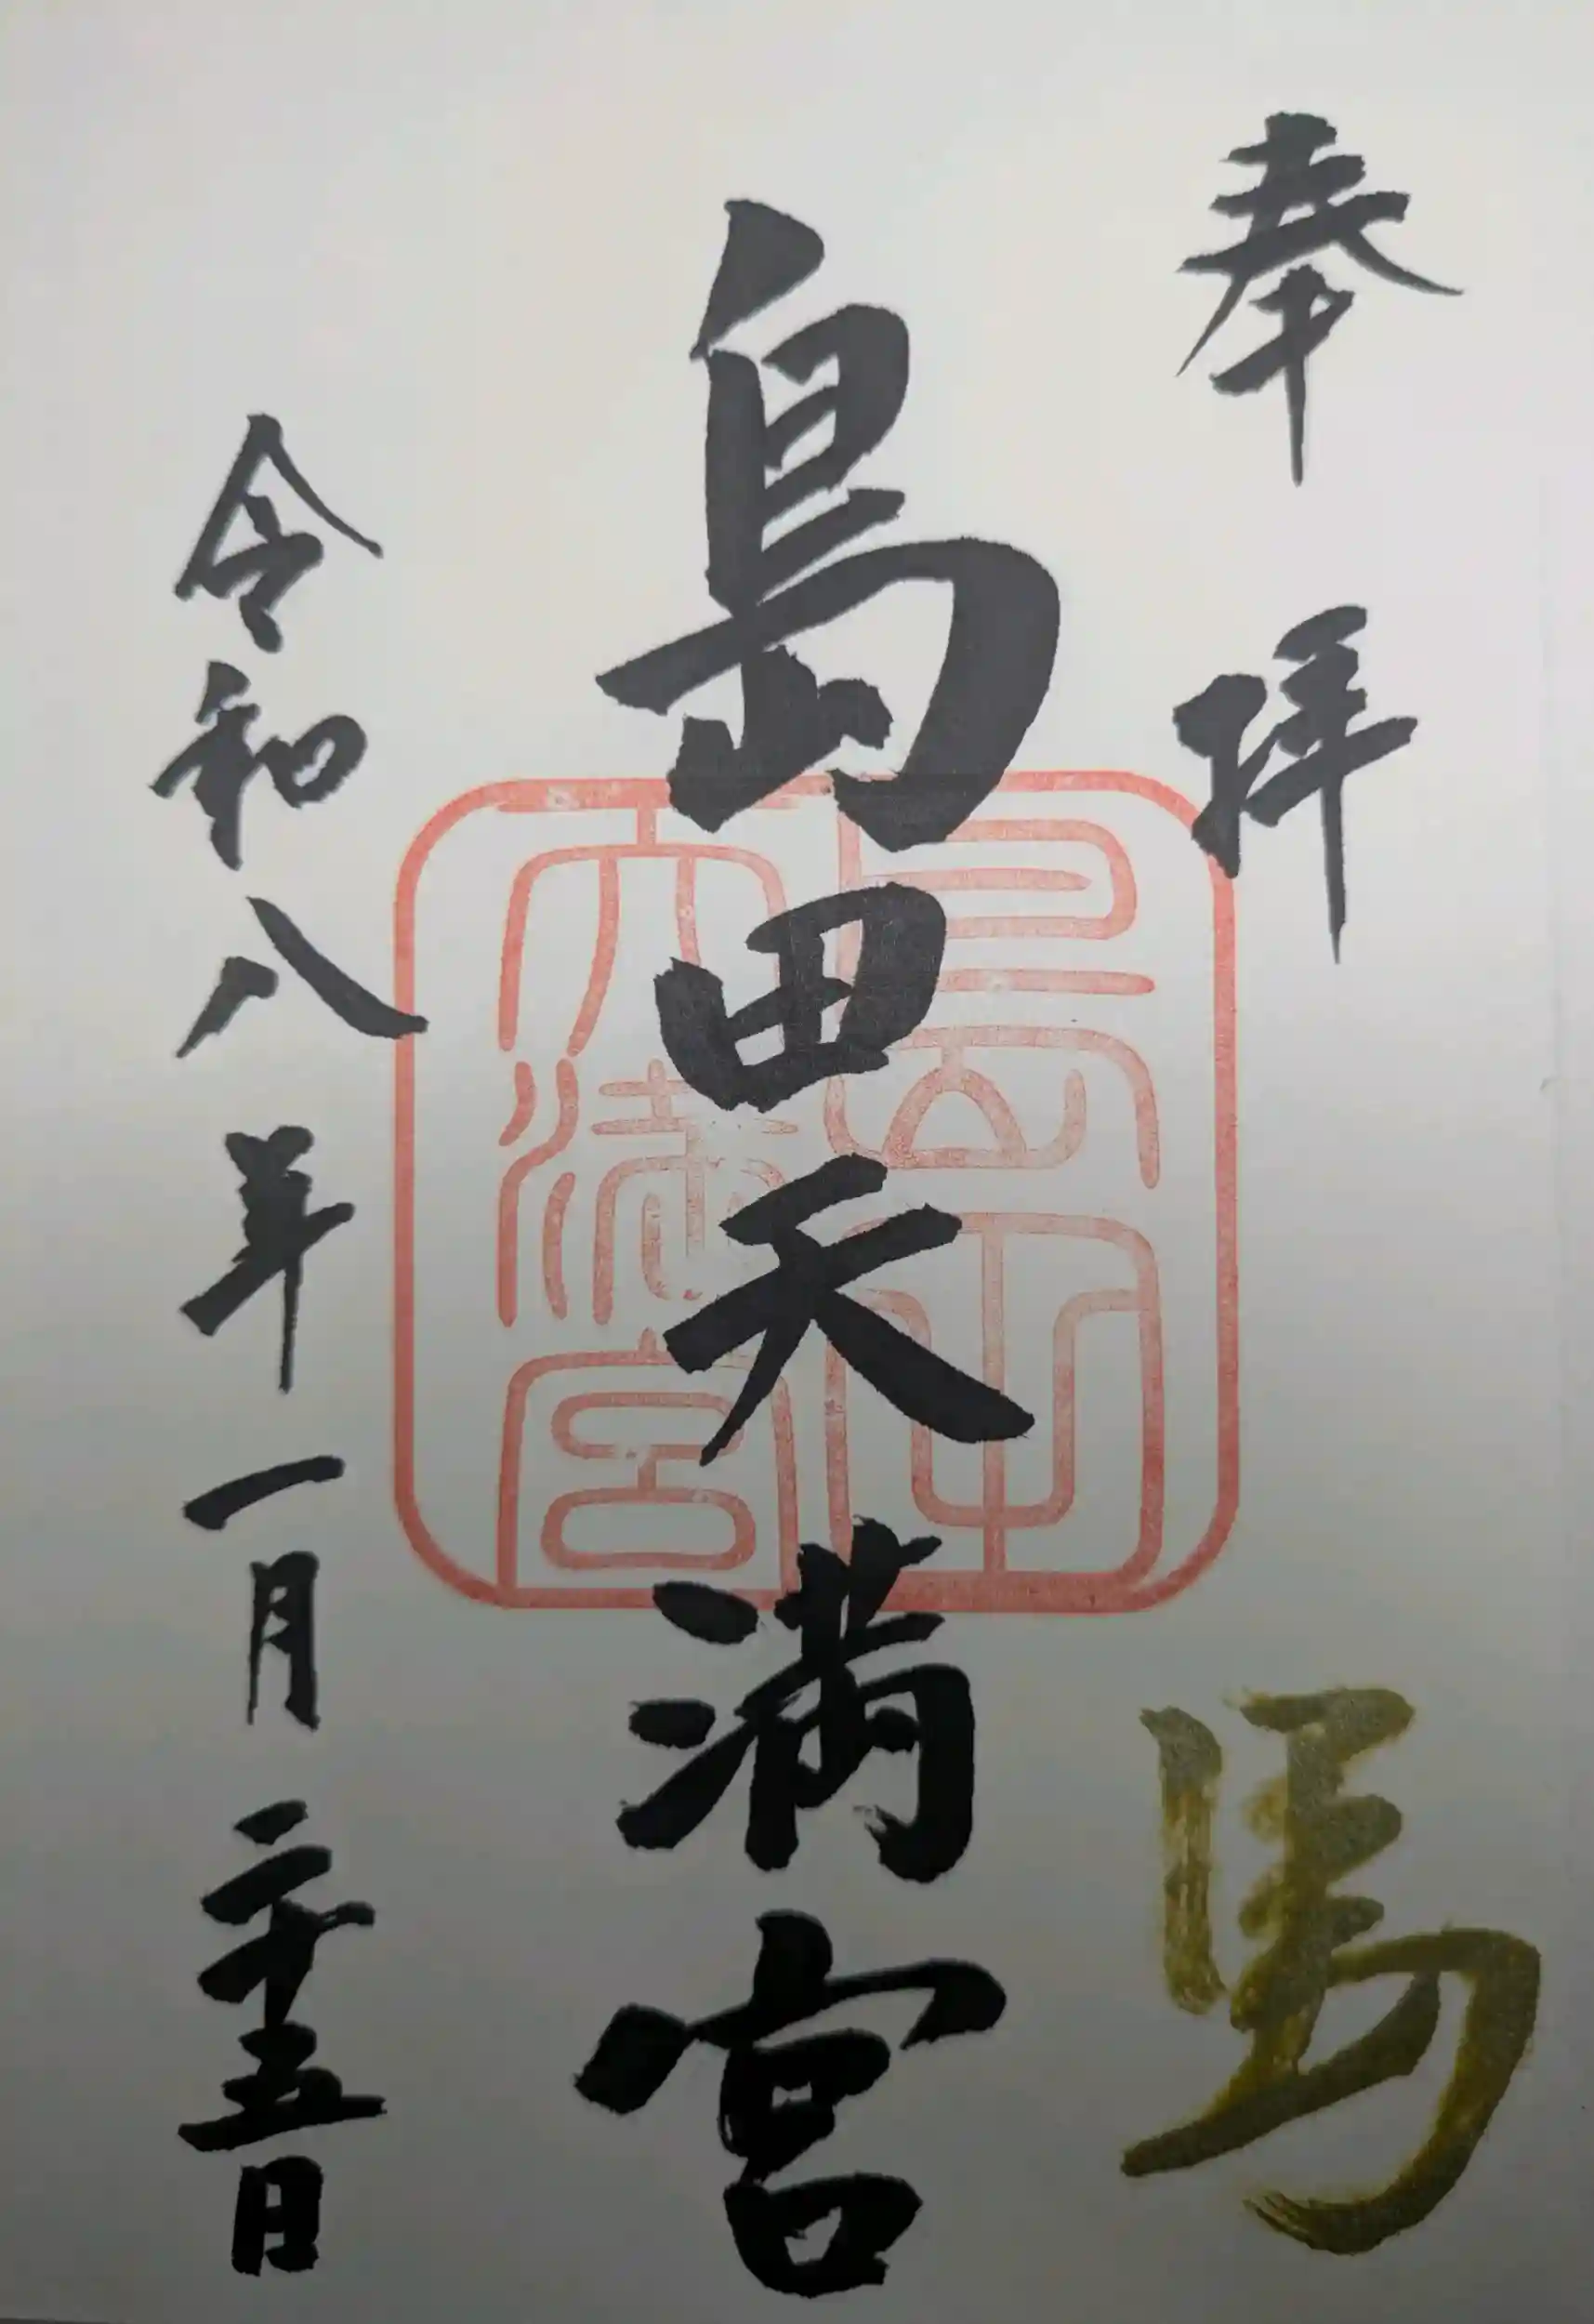 奉拝
馬
島田天満宮
島田
天満宮
令和八年一月二十五日